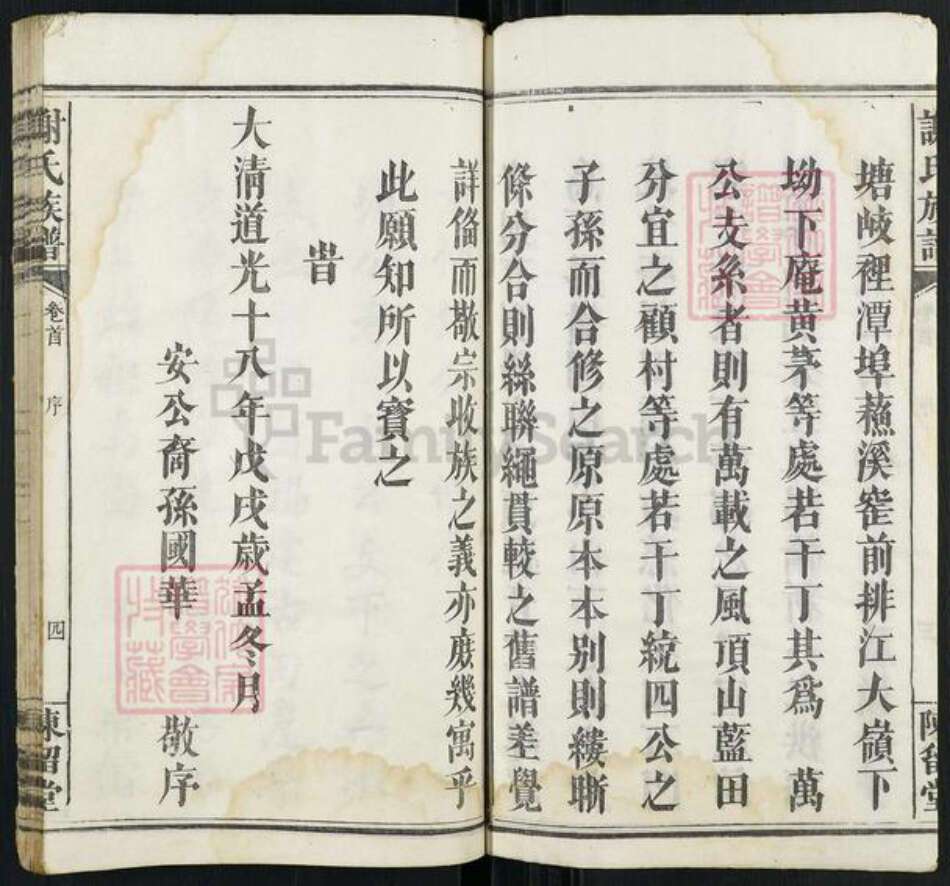 塘岐裡潭埠蘓溪窰前排江大嶺下
坳下庵黄茅等處若干丁其為萬
公支系者則有萬載之風項山藍田
分宜之顧村等處若干丁統四公之
子孫而合修之原原本本别則縷晰
條分合則絲聯繩貫較之舊譜差覺
詳俻而敬宗收族之義亦庶幾寓乎
此願知所以寳之
旹
大清道光十八年戊戌歲孟冬月
安公裔孫國華 敬序
謝氏族譜
卷首
序
四
陳留堂
FamilySearch